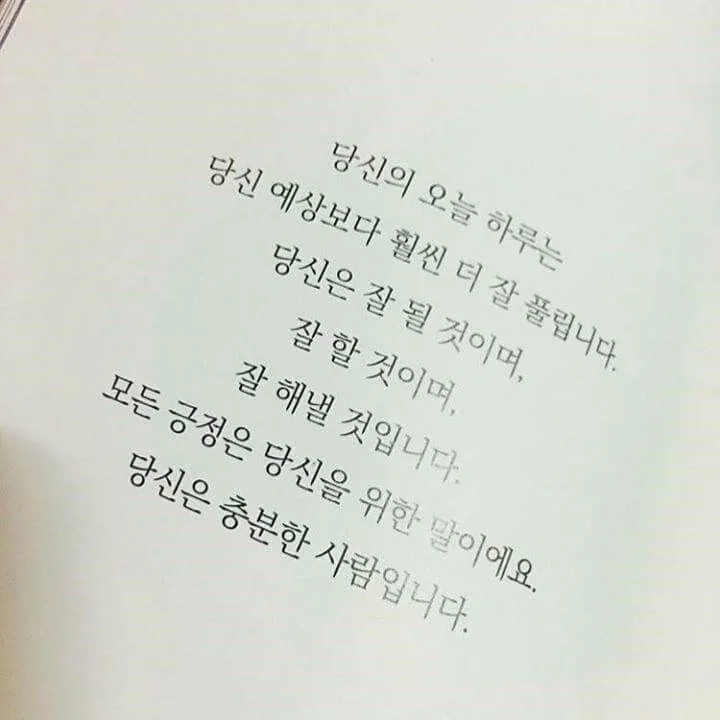 당신의 오늘 하루는
당신 예상보다 훨씬 더 잘 풀립니다.
당신은 잘 될 것이며,
잘 할 것이며,
잘 해낼 것입니다.
모든 긍정은 당신을 위한 말이에요.
당신은 충분한 사람입니다.